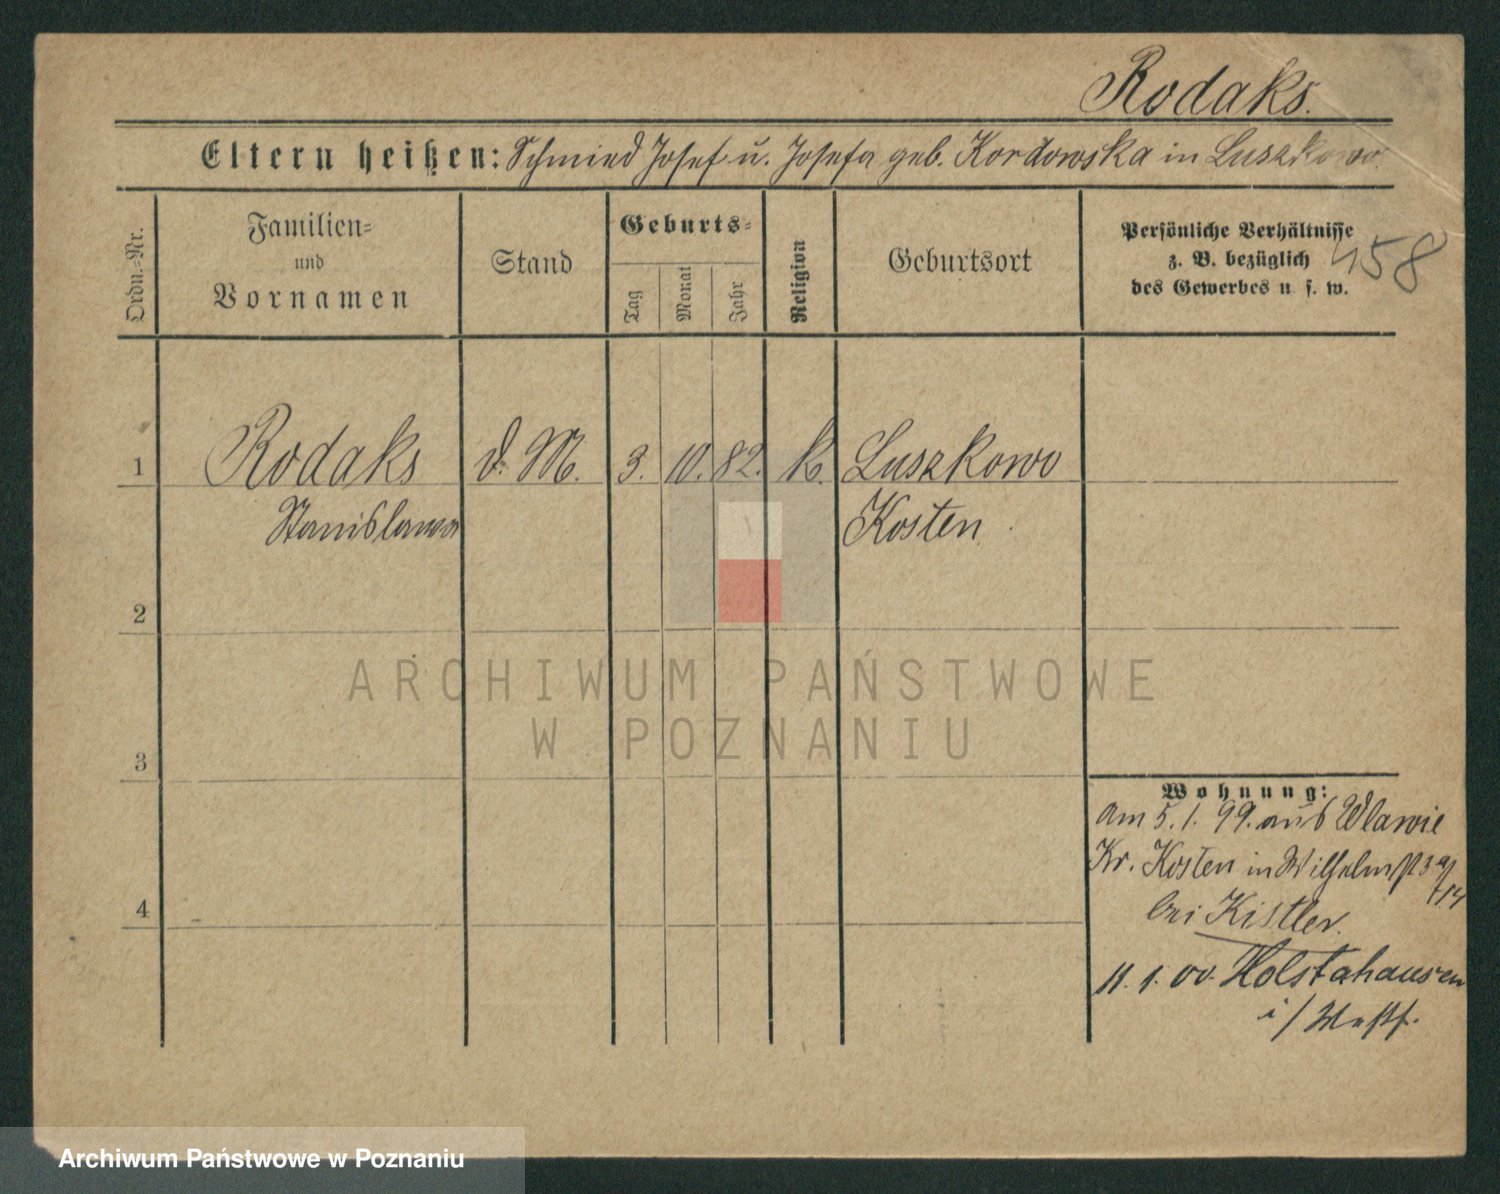 Rodaks.
Eltern heißen: Schmied Josef u. Josefa geb. Kordowska in Luszkowo.
Ordn.-Nr.
Familien-
und
Vornamen
Stand
Geburts-
Tag
Monat
Jahr
Religion
Geburtsort
Persönliche Verhältnisse
z. B. bezüglich
des Gewerbes u. s. w.
458
1 Rodaks d. M. 3. 10. 82. k. Luszkowo
Stanislawa Kosten
2
3
4
Wohnung:
am 5.1.99. aus Wlawie
Kr. Kosten in Wilhelmst 3
bei Kistler.
11.1.00. Holstahausen
i/Westf.
ARCHIWUM PAŃSTWOWE
W POZNANIU
Archiwum Państwowe w Poznaniu